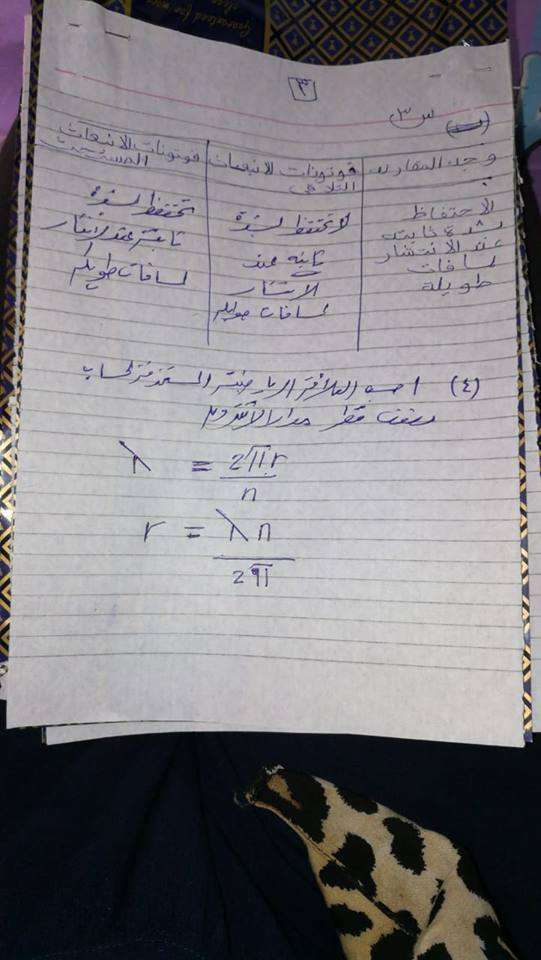 Guaranteed for
٣
س٣ (ب)
وجه المقارنة
فوتونات الانبعاث التلقائى
فوتونات الانبعاث المستحث
الاحتفاظ
بشدة ثابتة
عند الانتشار
لمسافات
طويلة
لا تحتفظ بشدة
ثابته عند
الانتشار
لمسافات طويله
تحتفظ بشدة
ثابتة عند انتشار
لمسافات طويله
(٤) احسب العلاقة الرياضية المستخدمة لحساب
نصف قطر مدار الالكترون
λ = 2πr
n
r = λn
2π